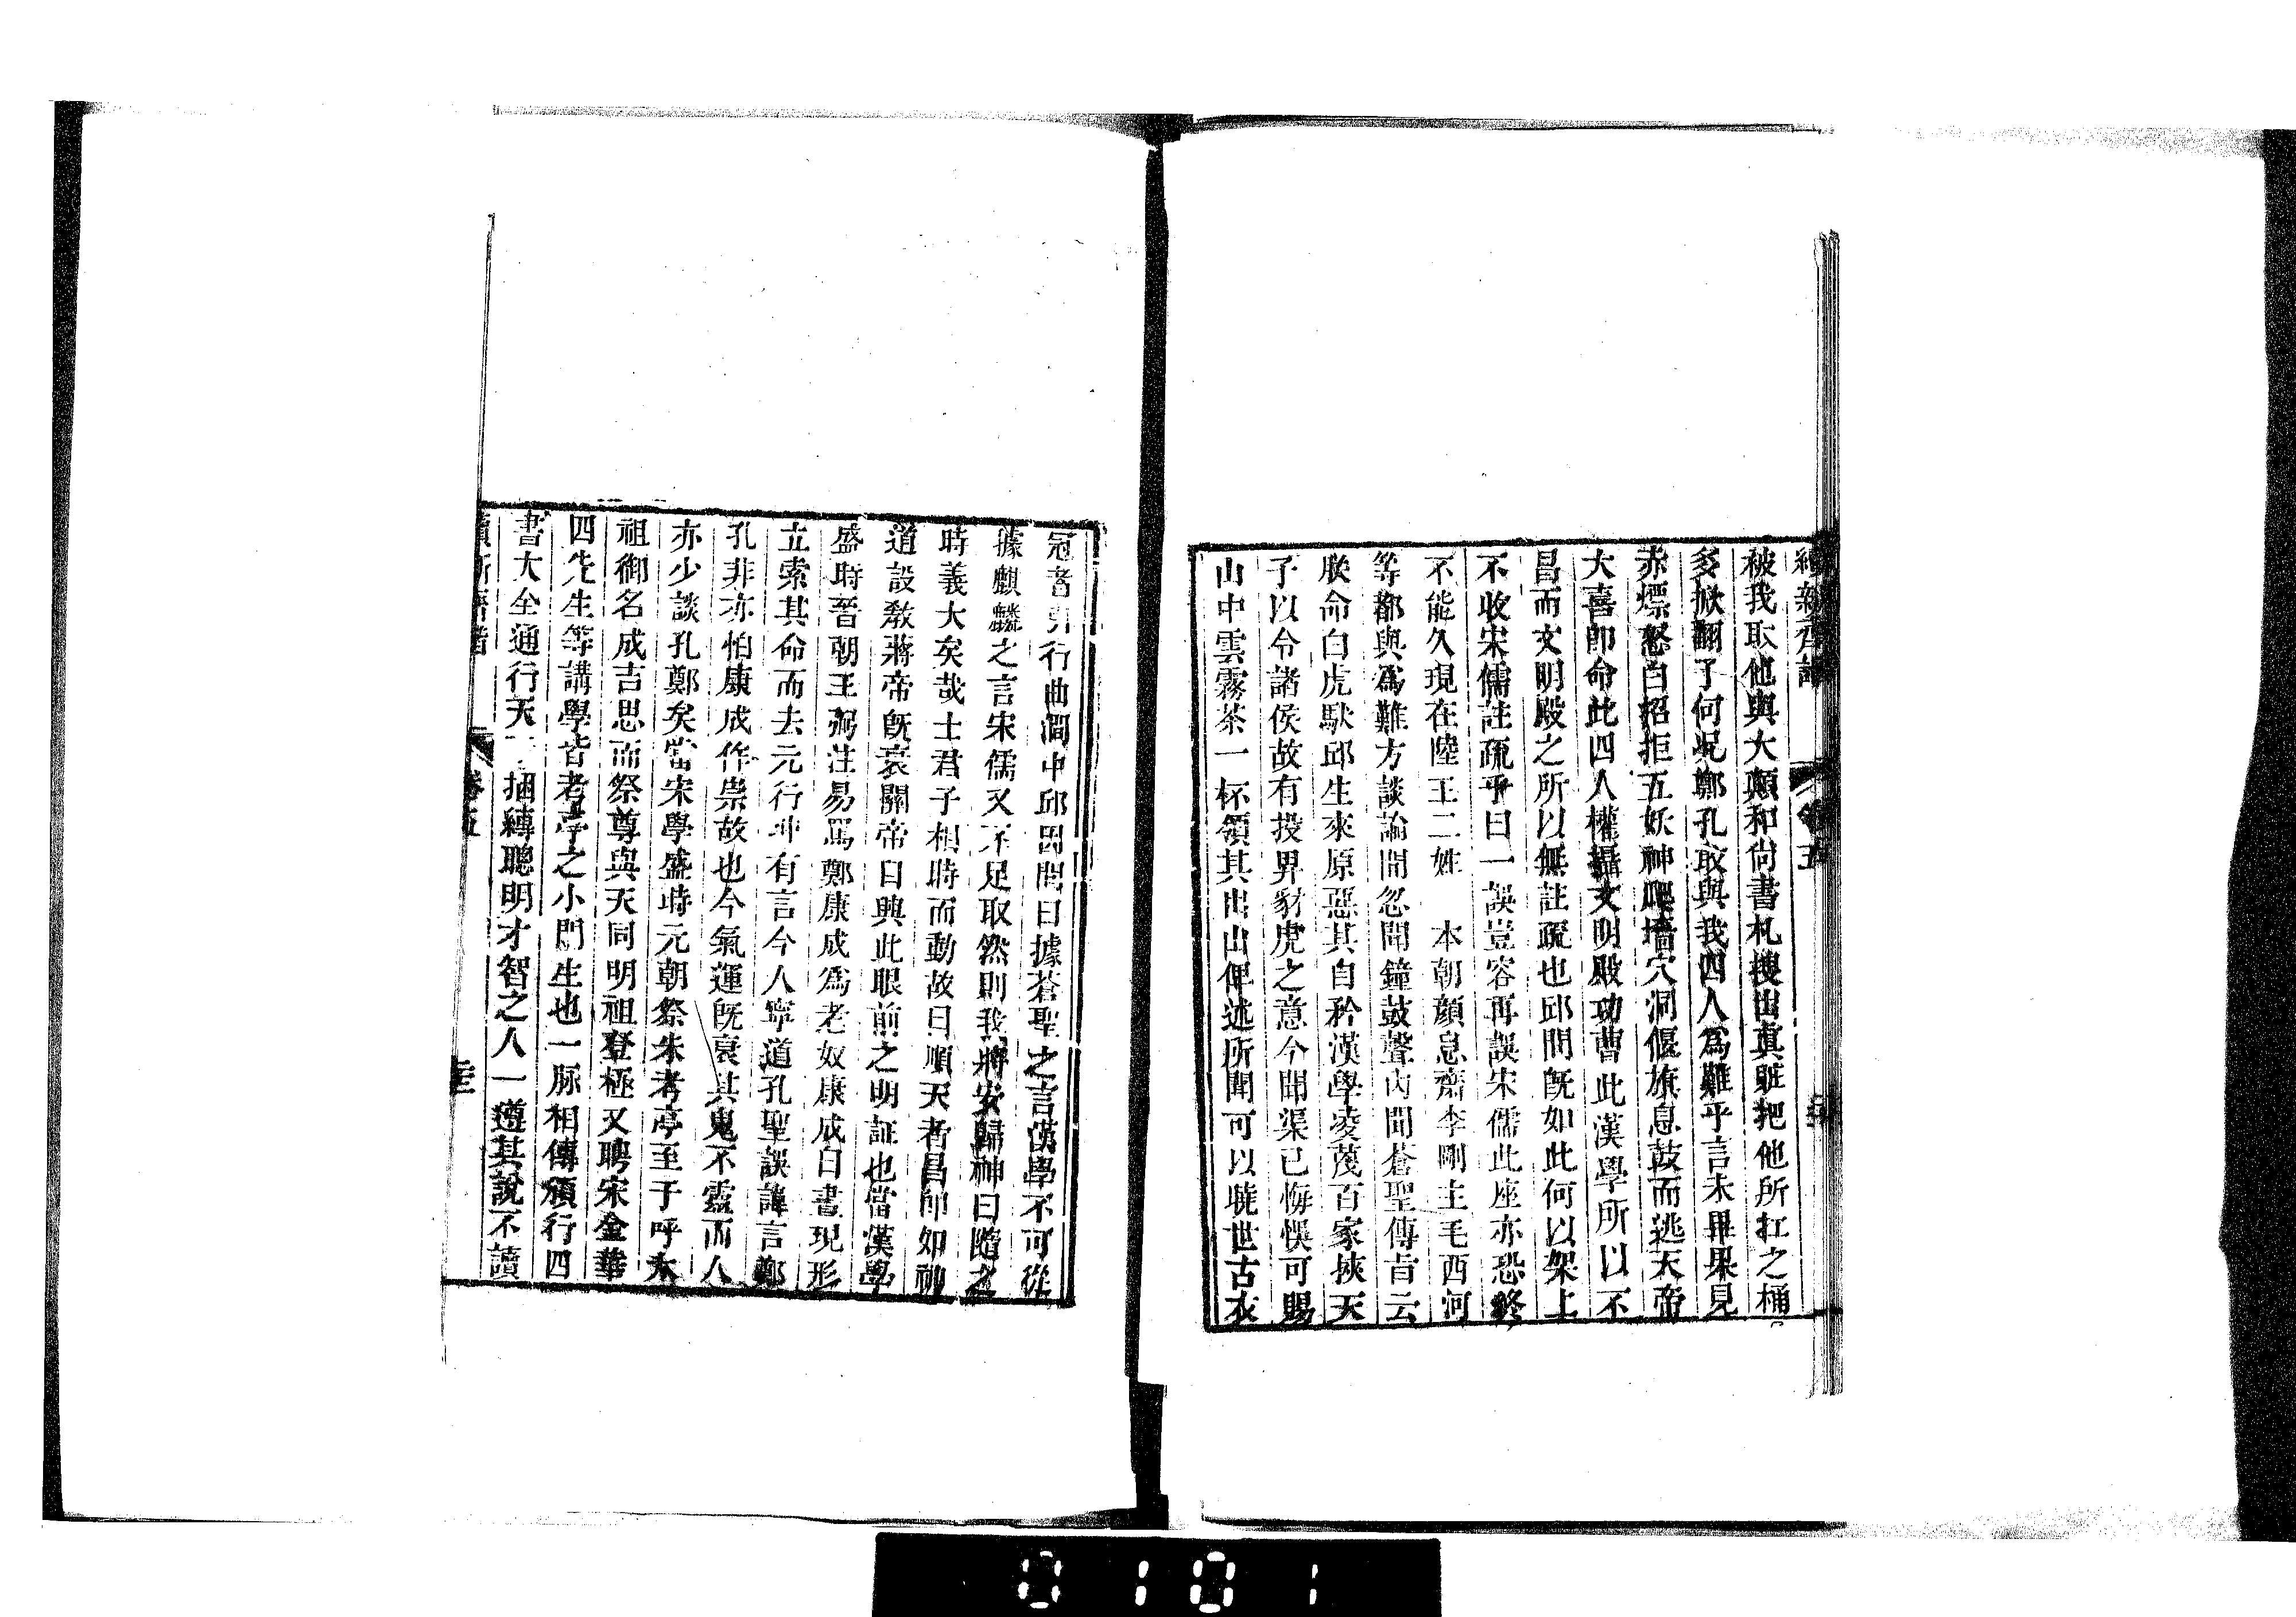 續新齊諧
卷五
被我取他與大顛和尚書札搜出真贓把他所扛之桶
多掀翻了何况鄭孔敢與我四人為難乎言未畢果見
赤熛怒白招拒五妖神爬墻穴洞偃旗息鼓而逃天帝
大喜即命此四人權攝文明殿功曹此漢學所以不
昌而文明殿之所以無註疏也邱問既如此何以架上
不收宋儒註疏乎曰一誤豈容再誤宋儒此座亦恐終
不能久現在陸王二姓 本朝顏息齋李剛主毛西河
等都與為難方談論間忽聞鐘鼓聲內閣蒼聖傳旨云
朕命白虎馱邱生來原惡其自矜漢學凌蔑百家挾天
子以令諸侯故有投畀豺虎之意今聞渠已悔悞可賜
山中雲霧茶一杯領其出出俾述所聞可以曉世古衣
冠者引行曲澗中邱因問曰據蒼聖之言漢學不可從
據麒麟之言宋儒又不足取然則我將安歸神曰隨之
時義大矣哉士君子相時而動故曰順天者昌即如神
道設教蔣帝既衰關帝日興此眼前之明証也當漢學
盛時晉朝王弼注易罵鄭康成為老奴康成白晝現形
立索其命而去元行冲有言今人寧道孔聖誤諱言鄭
孔非亦怕康成作祟故也今氣運既衰其鬼不靈而人
亦少談孔鄭矣當宋學盛時元朝祭朱考亭至于呼太
祖御名成吉思而祭尊與天同明祖登極又聘宋金華
四先生等講學皆考亭之小門生也一脈相傳頒行四
書大全通行天下捆縛聰明才智之人一遵其說不讀
續新齊諧
卷五
0101